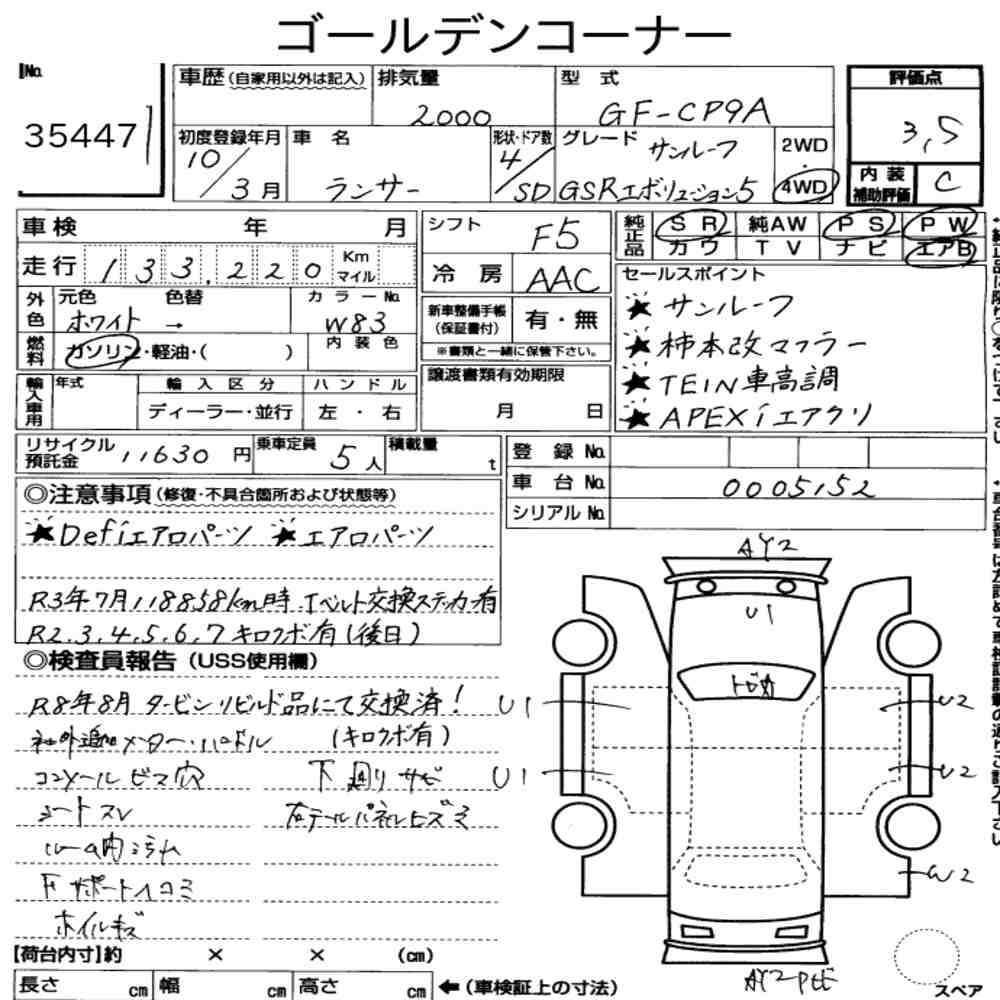 ゴールデンコーナー
No.
35447
車歴(自家用以外は記入)
排気量
2000
型式
GF-CP9A
評価点
3,5
内装補助評価
C
初度登録年月
10/3月
車名
ランサー
形状・ドア数
4/SD
グレード サンルーフ
GSRエボリューション5
2WD
・
4WD
車検 年 月
走行 133,220 Km マイル
シフト
F5
冷房
AAC
純正品
SR 純AW PS PW
カワ TV ナビ エアB
外色
元色 色替
ホワイト →
カラーNo.
W83
燃料
ガソリン・軽油・( )
内装色
新車整備手帳(保証書付)
有・無
※書類と一緒に保管下さい。
セールスポイント
★サンルーフ
★柿本改マフラー
★TEIN車高調
★APEXiエアクリ
輸入車用
年式
輸入区分
ディーラー・並行
ハンドル
左・右
譲渡書類有効期限
月 日
リサイクル預託金 11630円
乗車定員 5人
積載量 t
登録No.
車台No. 0005152
シリアルNo.
◎注意事項(修復・不具合箇所および状態等)
★Defiエアロパーツ ★エアロパーツ
R3年7月118858km時 Tベルト交換ステッカー有
R2,3,4,5,6,7キロクボ有(後日)
◎検査員報告(USS使用欄)
R8年8月 タービンリビルド品にて交換済!
社外追加メーター・ハンドル (キロクボ有)
コンソールビス穴 下廻りサビ
シートスレ 右テールパネルヒズミ
ルーム内シミ
Fサポートヘコミ
ホイルキズ
AY2
U1
U1
U2
U1
U2
W2
【荷台内寸】約 × × (cm)
長さ cm 幅 cm 高さ cm
←(車検証上の寸法)
スペア